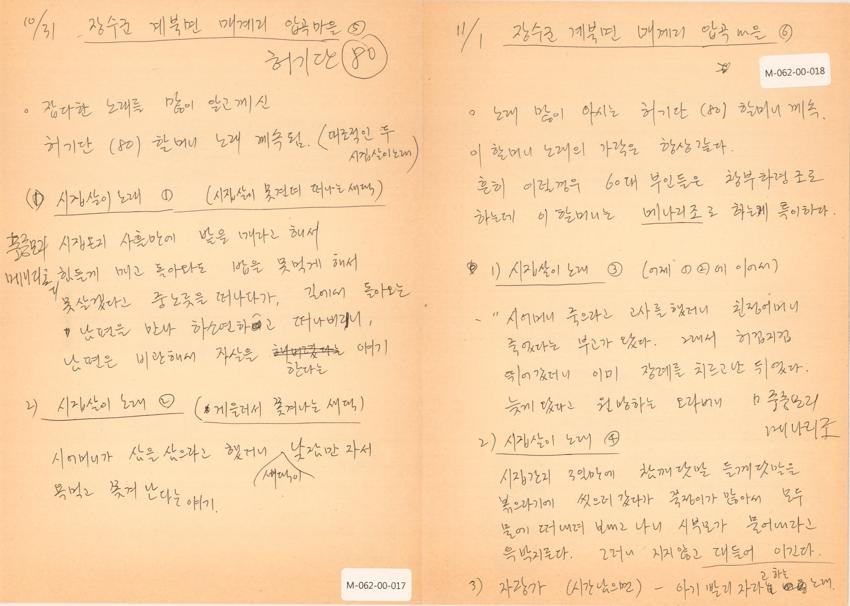 10/31 장수군 계북면 매계리 압곡마을 ⑤
허기단 80
○ 잡다한 노래를 많이 알고 계신
허기단 (80) 할머니 노래 계속됨. (대조적인 두
시집살이노래)
(1) 시집살이 노래 ① (시집살이 못견뎌 떠나는 새댁)
중중모리
메나리조
시집온지 사흘만에 밭을 매라고 해서
힘들게 매고 돌아와도 밥을 못먹게 해서
못살겠다고 중노릇을 떠나다가, 길에서 돌아오는
남편을 만나 하소연하고 떠나버리니,
남편은 비관해서 자살을 한다는 얘기
2) 시집살이 노래 ② (게을러서 쫓겨나는 새댁)
시어머니가 삼을 삼으라고 했더니 새댁이 낮잠만 자서
욕먹고 쫓겨 난다는 얘기.
M-062-00-017
11/1 장수군 계북면 매계리 압곡마을 ⑥
M-062-00-018
○ 노래 많이 아시는 허기단 (80) 할머니 계속.
이 할머니 노래의 가락은 항상 같다.
흔히 이럴경우 60대 부인들은 창부타령조로
하는데 이 할머니는 메나리조로 하는게 특이하다.
1) 시집살이 노래 ③ (어제 ①②에 이어서)
- " 시어머니 죽으라고 고사를 했더니 친정어머니
죽었다는 부고가 왔다. 그래서 허겁지겁
뛰어갔더니 이미 장례를 치르고난 뒤였다.
늦게 왔다고 원망하는 오라버니
중중모리
메나리조
2) 시집살이 노래 ④
시집간지 3일만에 참깨닷말 들깨닷말을
볶으라기에 씻으러 갔다가 쭉정이가 많아서 모두
물에 떠내려 보내고 나니 시부모가 물어내라고
윽박지른다. 그러니 지지않고 대들어 이긴다.
3) 자장가 (시간남으면) - 아기 빨리 자라고 하는 노래.